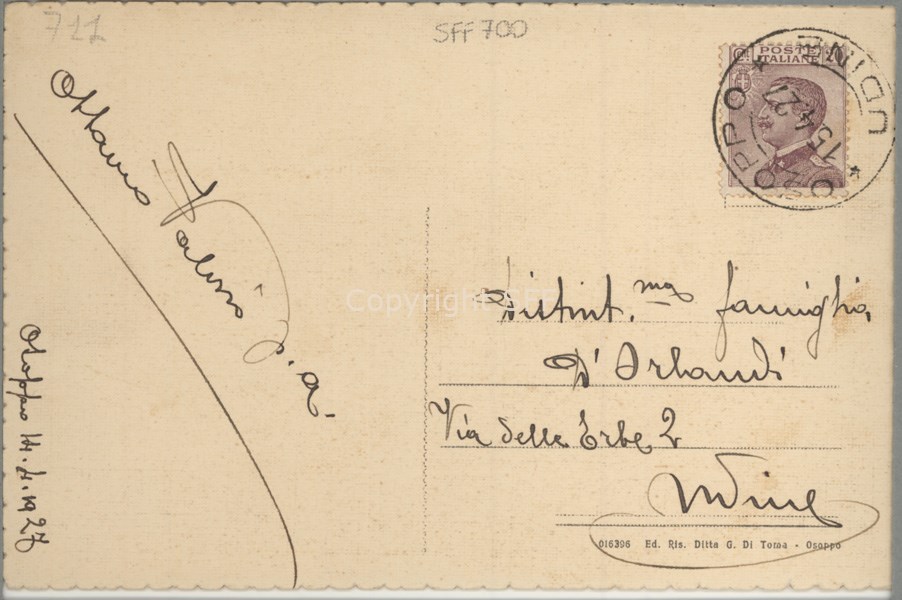 711
SFF 700
POSTE
ITALIANE
OZOPPO * UDINE *
15 4 27
Ottavio
Valerio
Distint.ma famiglia
D'Orlandi
Via delle Erbe 2
Udine
Osoppo 14.4.1927
Copyright SFF
016396 Ed. Ris. Ditta G. Di Toma - Osoppo